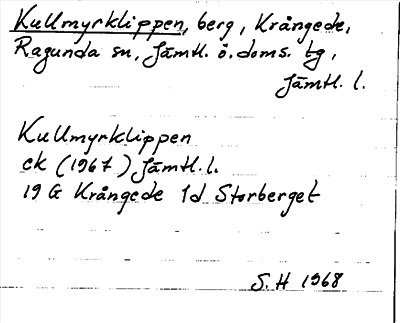 Kullmyrklippen, berg, Krångede,
Ragunda sn, Jämtl. ö. doms. tg,
Jämtl. l.
Kullmyrklippen
ek (1967) Jämtl. l.
19 G Krångede 1d Storberget
S. H 1968